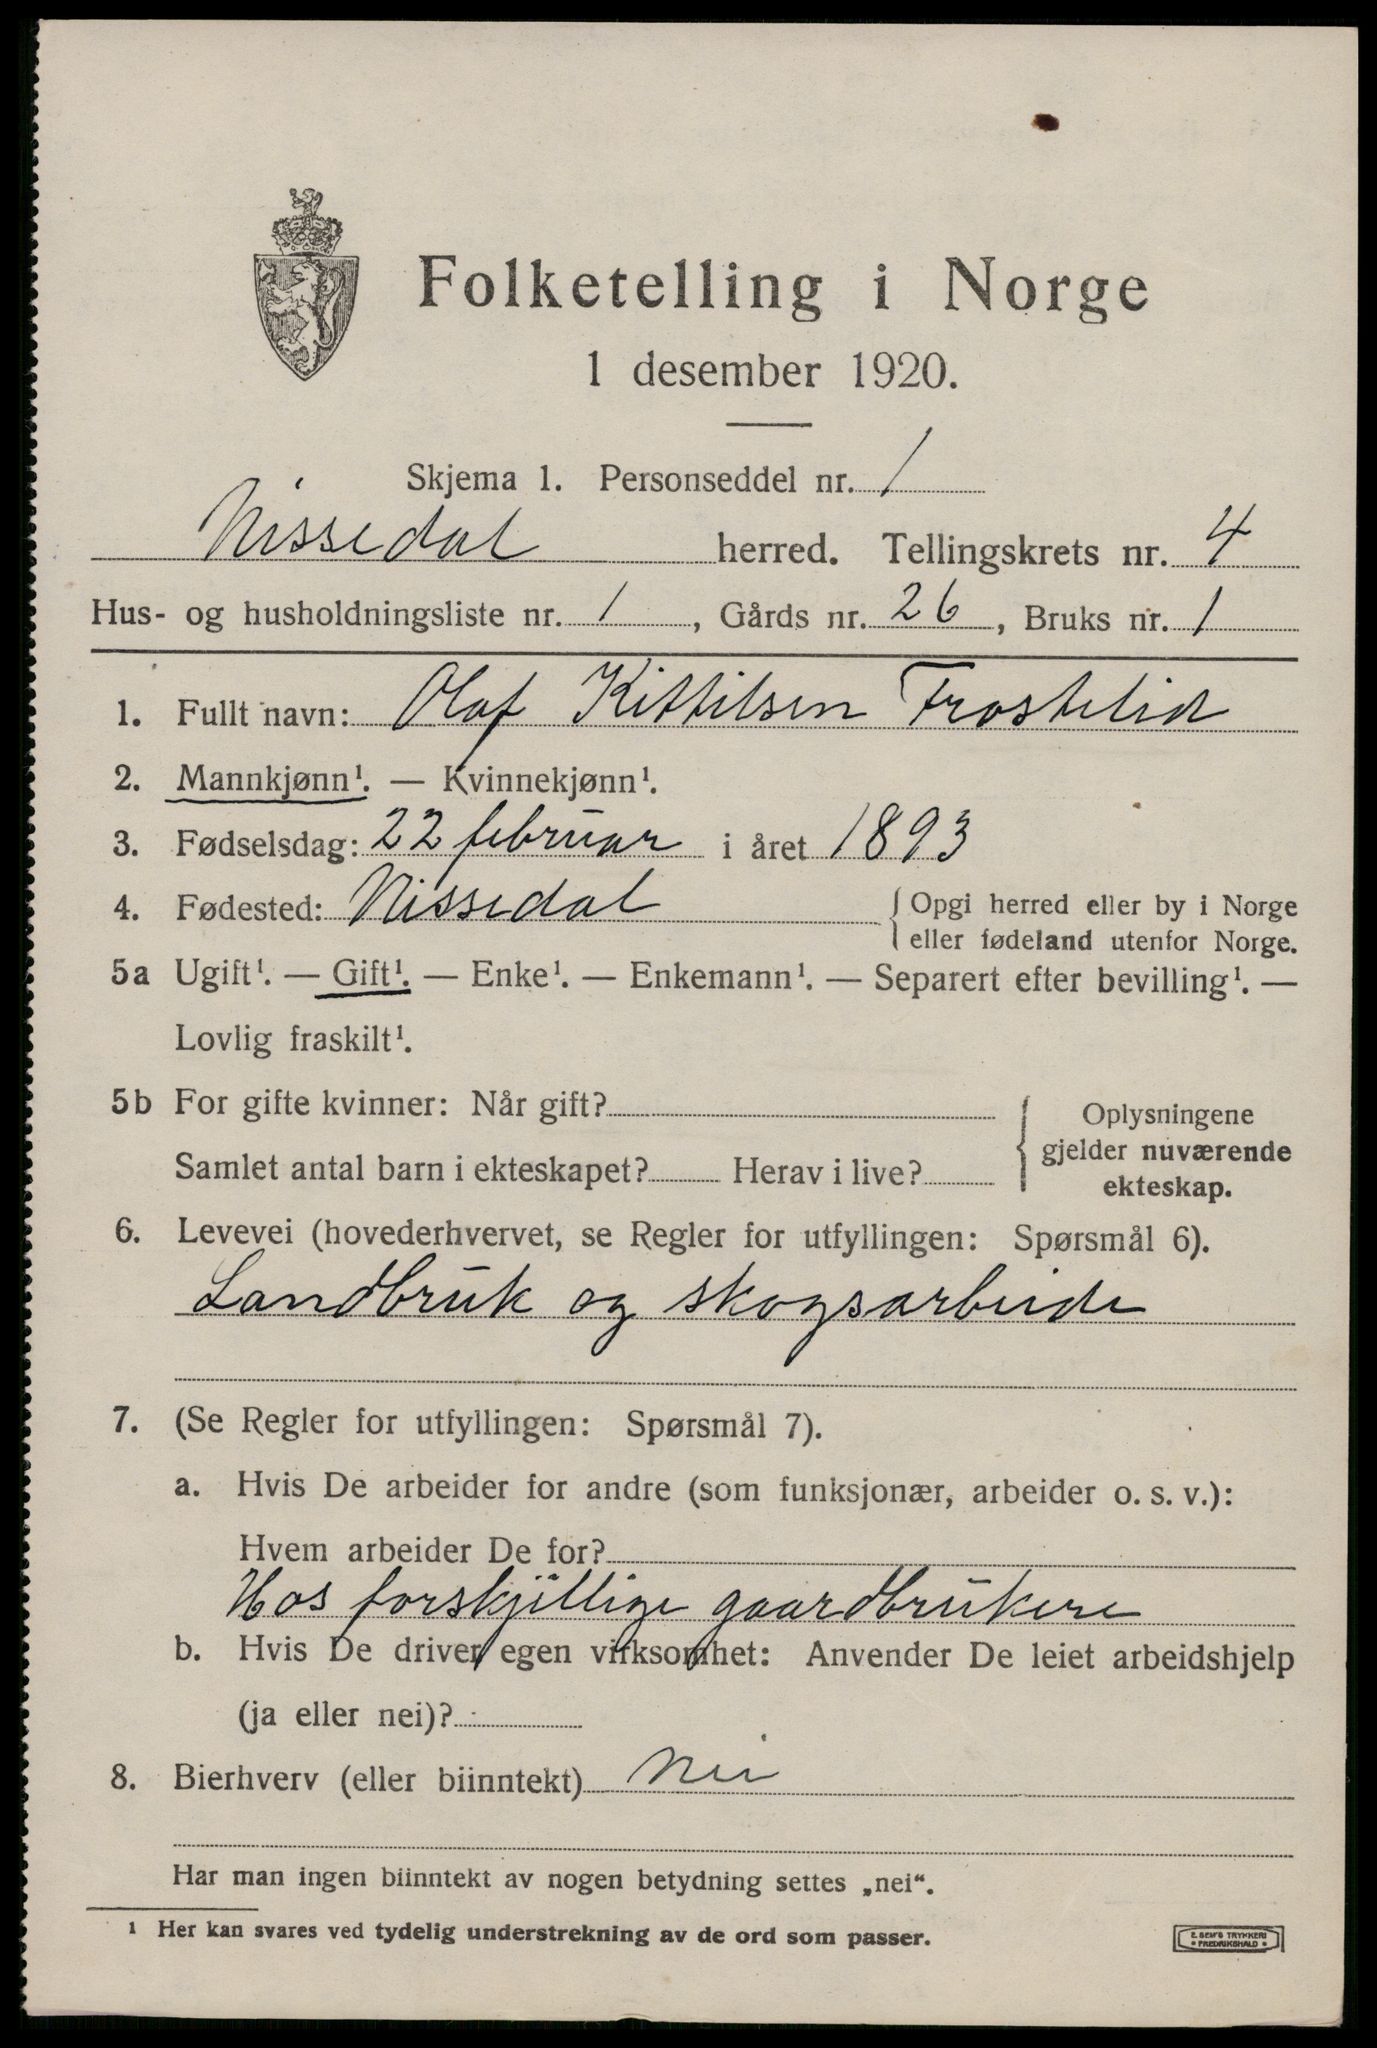 Folketelling i Norge
1 desember 1920.
Skjema 1. Personseddel nr. 1
Nissedal herred. Tellingskrets nr. 4
Hus- og husholdningsliste nr. 1, Gårds nr. 26, Bruks nr. 1
1. Fullt navn: Olaf Kittilsen Frostelid
2. Mannkjønn¹. — Kvinnekjønn¹.
3. Fødselsdag: 22 februar i året 1893
4. Fødested: Nissedal { Opgi herred eller by i Norge
eller fødeland utenfor Norge.
5a Ugift¹. — Gift¹. — Enke¹. — Enkemann¹. — Separert efter bevilling¹. —
Lovlig fraskilt¹.
5b For gifte kvinner: Når gift? { Oplysningene
gjelder nuværende
Samlet antal barn i ekteskapet? Herav i live?
ekteskap.
6. Levevei (hovederhvervet, se Regler for utfyllingen: Spørsmål 6).
Landbruk og skogsarbeide
7. (Se Regler for utfyllingen: Spørsmål 7).
a. Hvis De arbeider for andre (som funksjonær, arbeider o. s. v.):
Hvem arbeider De for?
Hos forskjillige gaardbrukere
b. Hvis De driver egen virksomhet: Anvender De leiet arbeidshjelp
(ja eller nei)?
8. Bierhverv (eller biinntekt) Nei
Har man ingen biinntekt av nogen betydning settes „nei“.
¹ Her kan svares ved tydelig understrekning av de ord som passer.
E. SEM'S TRYKKERI
• FREDRIKSHALD •